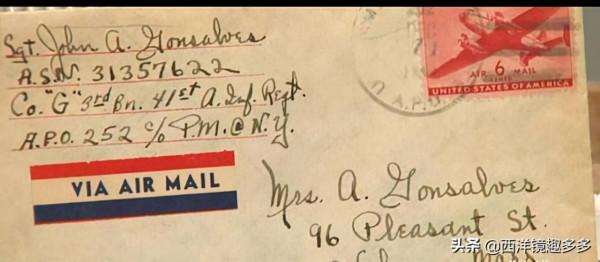 Sgt. John A. Gonsalves
A.S.N. 31357622
Co. "G" 3rd Bn. 41st A. Inf. Regt.
A.P.O. 252 c/o P.M. @ N.Y.
VIA AIR MAIL
A.P.O.
AIR 6¢ MAIL
UNITED STATES OF AMERICA
Mrs. A. Gonsalves
96 Pleasant St.
Mass.
头条 @西洋镜趣多多